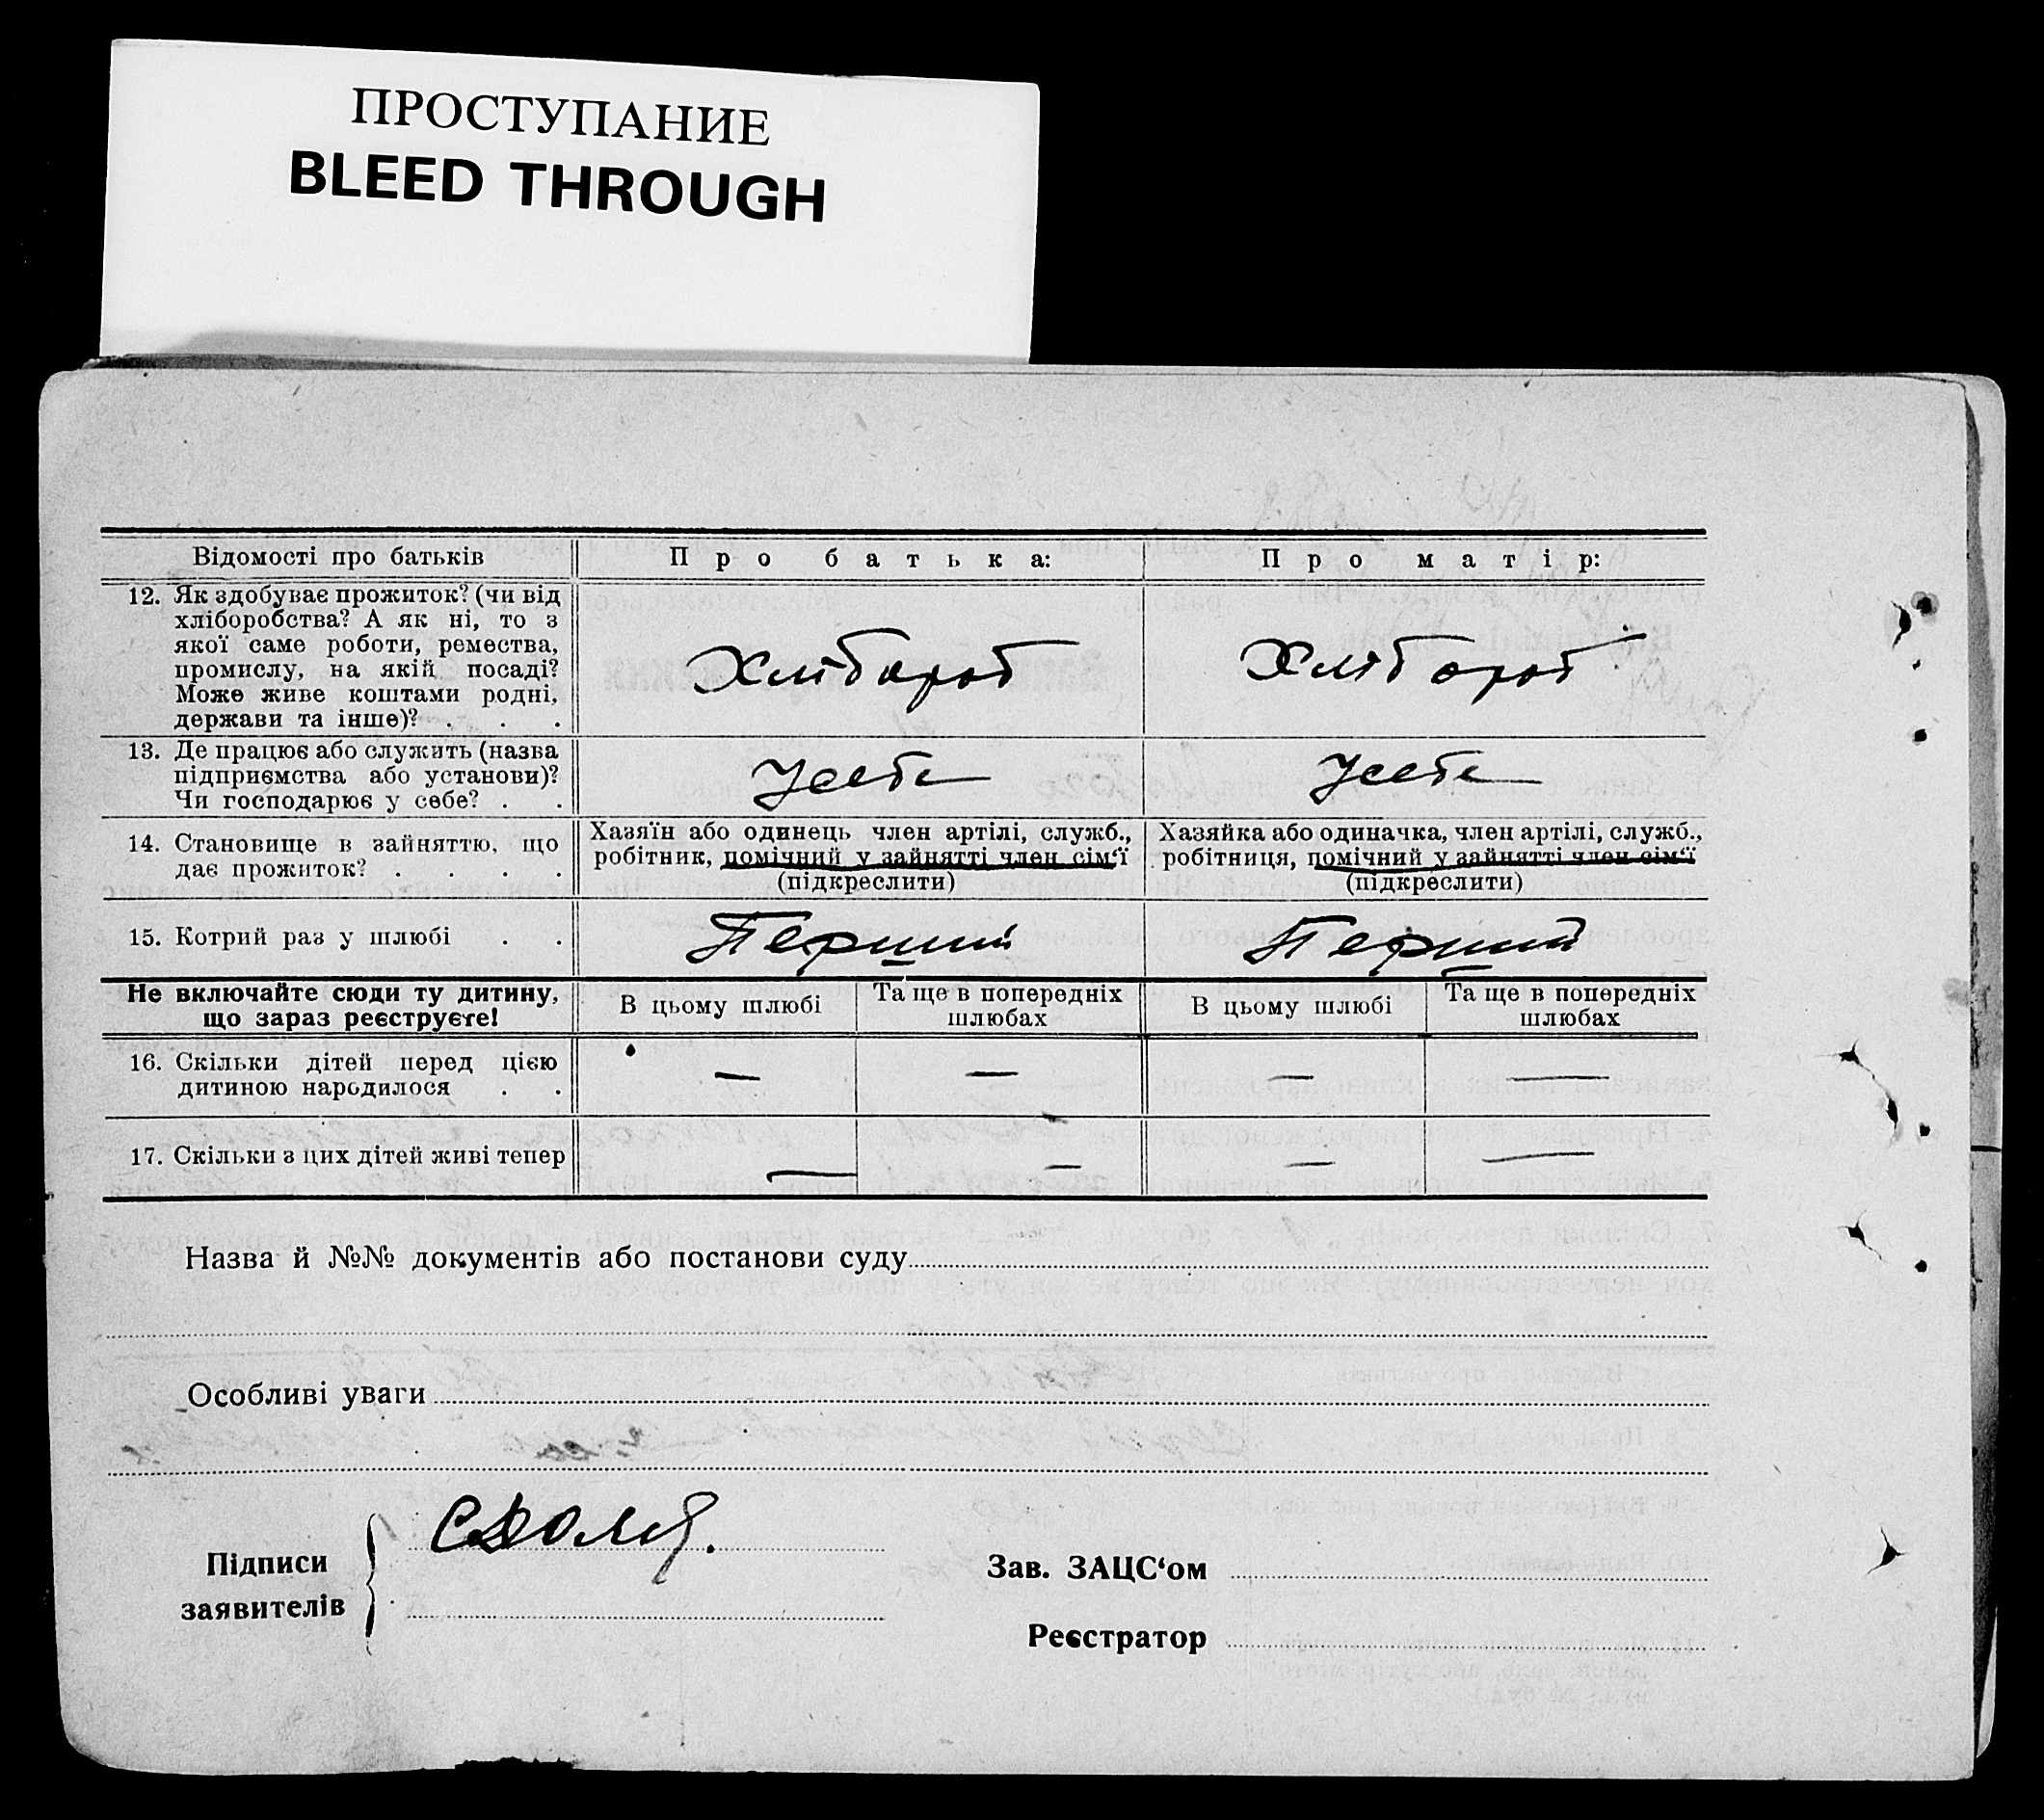 ПРОСТУПАНИЕ
BLEED THROUGH
Відомості про батьків
Про батька:
Про матір:
12. Як здобуває прожиток? (чи від
хліборобства? А як ні, то з
якої саме роботи, ремества,
промислу, на якій посаді?
Може живе коштами родні,
держави та інше)? . . .
Хлібороб
Хлібороб
13. Де працює або служить (назва
підприємства або установи)?
Чи господарює у себе? . .
У себе
У себе
14. Становище в зайняттю, що
дає прожиток? . . . .
Хазяїн або одинець член артілі, служб.,
робітник, помічний у зайнятті член сім‘ї
(підкреслити)
Хазяйка або одиначка, член артілі, служб.,
робітниця, помічний у зайнятті член сім‘ї
(підкреслити)
15. Котрий раз у шлюбі . .
Перший
Перший
Не включайте сюди ту дитину,
що зараз реєструєте!
В цьому шлюбі
Та ще в попередніх
шлюбах
В цьому шлюбі
Та ще в попередніх
шлюбах
16. Скільки дітей перед цією
дитиною народилося . .
— — — —
17. Скільки з цих дітей живі тепер
— — — —
Назва й №№ документів або постанови суду
Особливі уваги
Підписи
заявителів
Зав. ЗАЦС‘ом
Реєстратор